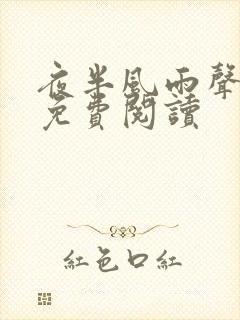 夜半風雨聲
免費閱讀
紅色口紅